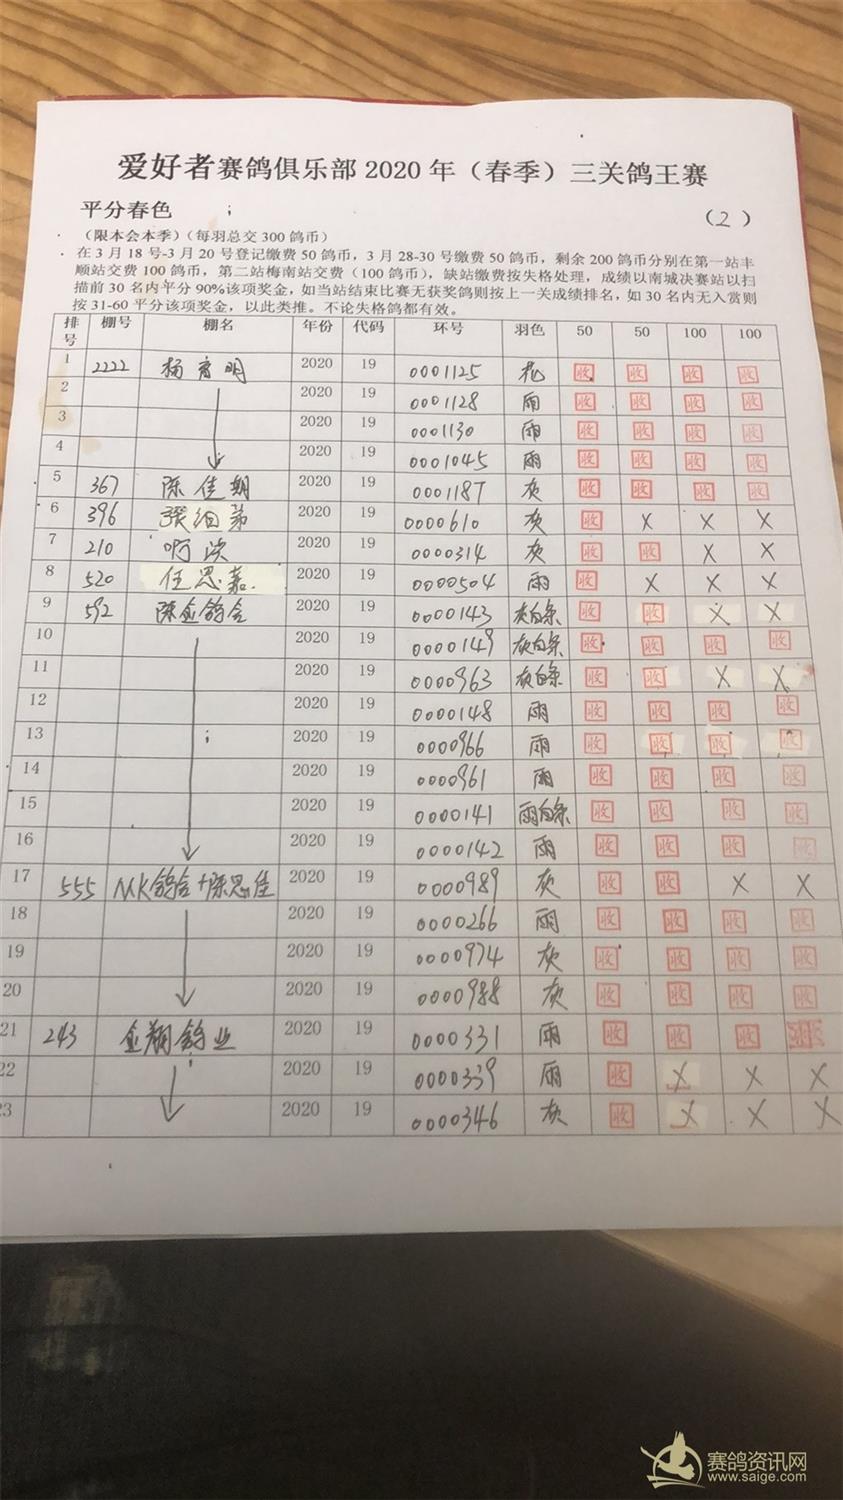 爱好者赛鸽俱乐部2020年（春季）三关鸽王赛
平分春色 ；
（2）
（限本会本季）（每羽总交300鸽币）
在3月18号-3月20号登记缴费50鸽币，3月28-30号缴费50鸽币，剩余200鸽币分别在第一站丰
顺站交费100鸽币，第二站梅南站交费（100鸽币），缺站缴费按失格处理，成绩以南城决赛站以扫
描前30名内平分90%该项奖金，如当站结束比赛无获奖鸽则按上一关成绩排名，如30名内无入赏则
按31-60平分该项奖金，以此类推。不论失格鸽都有效。
排号 棚号 棚名 年份 代码 环号 羽色 50 50 100 100
1 2222 杨育明 2020 19 0001125 花 收 收 收 收
2 2020 19 0001128 雨 收 收 收 收
3 2020 19 0001130 雨 收 收 收 收
4 2020 19 0001045 雨 收 收 收 收
5 367 陈佳期 2020 19 0001187 灰 收 收 收 收
6 396 2020 19 0000610 灰 收 X X X
7 210 2020 19 0000314 灰 收 收 X X
8 520 任思嘉 2020 19 0000504 雨 收 X X X
9 592 陈金鸽舍 2020 19 0000143 灰白条 收 收 X X
10 2020 19 0000149 灰白条 收 收 收 收
11 2020 19 0000963 灰白条 收 收 X X
12 2020 19 0000148 雨 收 收 收 收
13 ； 2020 19 0000966 雨 收 收 收 收
14 2020 19 0000961 雨 收 收 收 收
15 2020 19 0000141 雨白条 收 收 收 收
16 2020 19 0000142 雨 收 收 收 收
17 555 MK鸽舍+陈思佳 2020 19 0000989 灰 收 收 X X
18 2020 19 0000266 雨 收 收 收 收
19 2020 19 0000974 灰 收 收 收 收
20 2020 19 0000988 灰 收 收 收 收
21 243 金翔鸽业 2020 19 0000331 雨 收 收 收 收
22 2020 19 0000339 雨 收 X X X
23 2020 19 0000346 灰 收 X X X
赛鸽资讯网
www.saige.com